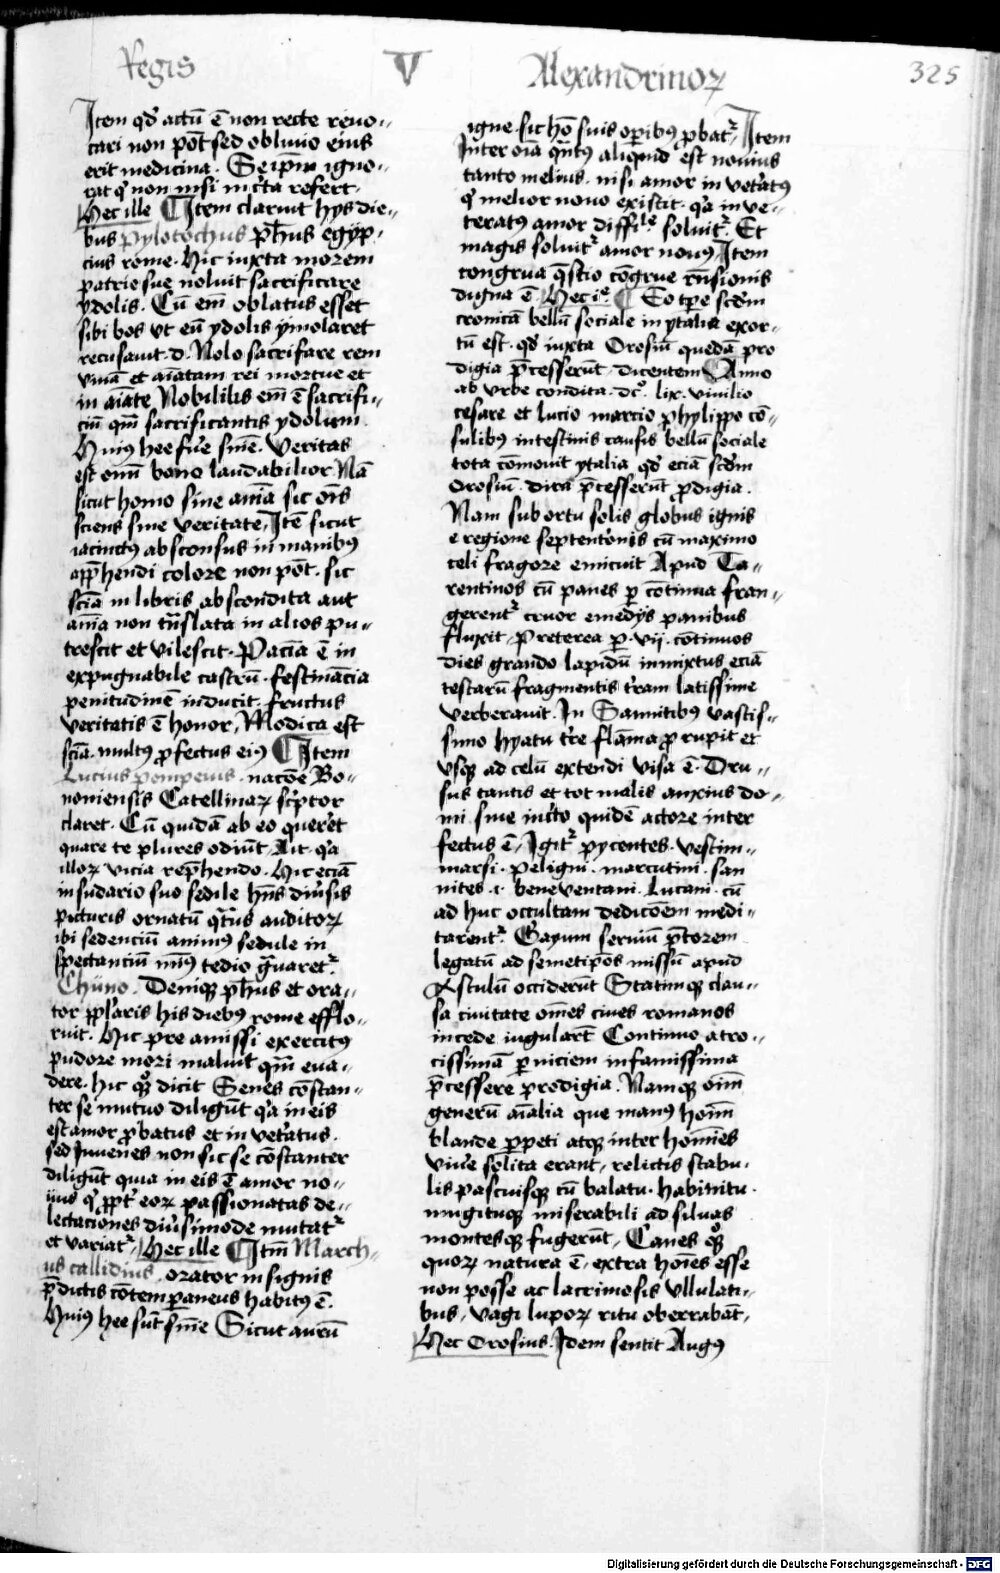 Regis V Alexandrinoꝝ 325
Item qđ actū ē non recte reuo〃
cari non pōt sed obliuio eius
erit medicina. Seipm̄ igno〃
rat qͥ non nisi incͥta refert.
Hec ille Item claruit hys die〃
bus Pylotochus ph̄us egyp〃
cius rome. Hic iuxta morem
patrie sue noluit sacrificare
ydolis. Cū em̄ oblatus esset
sibi bos vt eū ydolis ymolaret
recusauit .d. Nolo sacrifare rem
viuā et aīatam rei mortue et
in aīate Nobililis em̄ ē sacrifi〃
ciū qm̄ sacrificantis ydolum
Huius hee fūe sn̄ie. Veritas
est omī bono laudabilior Nā
sicut homo sine aīa sic oīs
sciens sine veritate, Itē sicut
iacinctꝰ absconsus in manibꝰ
app̄hendi colore non pōt. sic
scīa in libris abscondita aut
aīa non tn̄slata in alios pu〃
trescit et vilescit. Paciā ē in
expugnabile castrū. festināciā
penitudinē inducit. fructus
veritatis ē honor, Modica est
scīa. multꝰ profectus eiꝰ Item
Lucius pompeius. nacōe Bo〃
noniensis Catellinaꝝ scͥptor
claret. Cū quidā ab eo queret
quare te plures odiūt. Ait. qͥa
illoꝝ vicia rep̄hendo. Hic eciā
in sudario suo sedile hn̄s diuͥsis
picturis ornatū qͣtͥus auditoꝝ
ibi sedenciū animꝰ sedule in
spectanciū minꝰ tedio gͣuaretͬ
Chuno. Deniqꝫ ph̄us et ora〃
tor pplaris his diebꝰ rome efflo〃
ruit. Hic pre amissi exercitꝰ
pudore mori maluit qm̄ eua〃
dere. hic qꝫ dicit Senes cōstan〃
ter se mutuo diligūt qͥa in eis
est amor probatus et inveteratus.
sed Iuuenes non sic se cōstanter
diligūt quia in eis ē amor no〃
uus qͥ ppt̄ eoꝝ passionatas de〃
lectaciones diuͥsimode mutatͬ
et variatͬ. Hec ille Itm̄ March〃
us callidius, orator insignis
p̄dictis cōtemporaneus habitꝰ ē.
Huiꝰ hee sūt sn̄ie Sicut aurū
igne. sic hō suis operibꝰ probatͬ, Item
Inter oīa qn̄tꝰ aliquid est nouius
tanto melius. nisi amor in veteratꝰ
qͥ melior nouo existit. qͥa inve〃
teratꝰ amor diffile soluitͬ Et
magis soluitͬ amor nouꝰ, Item
congrua qͣstio cōgrue rn̄sionis
digna ē Hec ie. Eo tpe scdm̄
cronicā bellū sociale in ytalia exor〃
tū est. qđ iuxta Orosiū quedā pro
digia p̄cesserūt. dicentem Anno
ab vrbe condita. dcͦ. lix.
cesare et lucio marcio phylippo cō〃
sulibꝰ intestinis causis bellū sociale
tota cōmouit ytalia qđ eciā scdm̄
Orosiū. dira p̄cesserūt prodigia.
Nam sub ortu solis globus ignis
e regione septentͥonis cū maximo
celi fragore emicuit Apud Ta〃
rentinos cū panes per cōtinua fran〃
gerentͬ cruor emedijs panibus
fluxit. Preterea per .vij. cōtinuos
dies grando lapidū inmixtus eciā
testarū fragmentis tͥram latissime
verberauit. In Samitibꝰ vastis〃
simo hyatu tͥre flāma pro rupit et
vsqꝫ ad celū extendi visa ē. Dru〃
sus tantis et tot malis anxius do〃
mi sue incͥto quidē actore inter
fectus ē, Igitͬ pycentes. vestim〃
marsi. peligni. marcutini. san
nites .ꝛ. beneventani. Lucani. cū
ad huc occultam dedicōem medi〃
tarentͬ. Gayum seruiū p̄torem
legatū ad semetipos missū apud
Asculū occiderūt Statimqꝫ clau〃
sa ciuitate omēs ciues romanos
incede iugularēt Continuo atro〃
cissimā pernīciem infamissima
p̄cessere prodigia. Namqꝫ oīm
generū aīalia que manꝰ hoīm
blande perpeti atqꝫ inter homīes
viuͥe solita erant, relictis stabu.
lis pascuisqꝫ cū balatu. habinitu.
mugituqꝫ miserabili ad siluas
montesqꝫ fugerūt, Canes qꝫ
quoꝝ natura ē, extra hoīes esse
non posse ac lacrimosis vllulati〃
bus, vagi lupoꝝ ritu oberrabāt,
Hec Orosius. Idem sentit Augꝰ
Digitalisierung gefördert durch die Deutsche Forschungsgemeinschaft - DFG